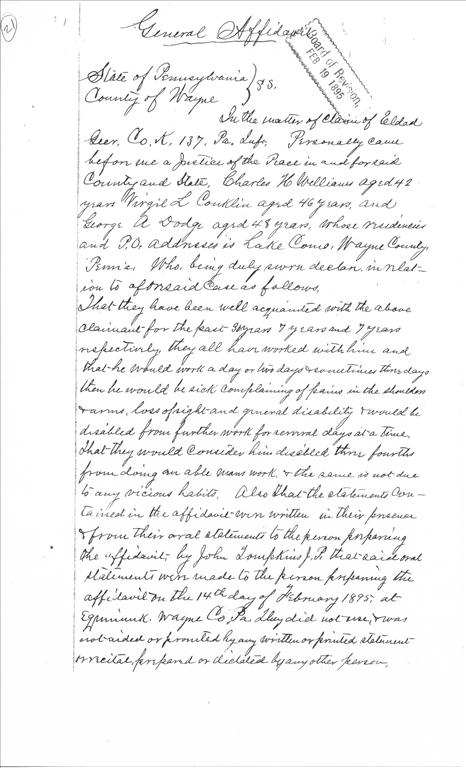 2
General Affidavit
Board of Revision,
FEB 19 1895
State of Pennsylvania } SS.
County of Wayne
In the matter of claim of Eldad
Geer, Co. K, 137, Pa. Infr. Personally came
before me a Justice of the Peace in and for said
County and State, Charles H Williams aged 42
years Virgil L Conklin aged 46 years, and
George A Dodge aged 48 years, whose residencies
and P.O. addresses is Lake Como, Wayne County,
Penn'a. Who, being duly sworn declare in relat-
ion to aforesaid case as follows.
That they have been well acquainted with the above
claimant for the past years 7 years and 7 years
respectively, they all have worked with him and
that he would work a day or two days & sometimes three days
then he would be sick complaining of pains in the shoulders
& arms, loss of sight and general disability & would be
disabled from further work for several days at a time.
That they would consider him disabled three fourths
from doing an able mans work, & the same is not due
to any vicious habits. Also that the statements con-
tained in the affidavit were written in their presence
& from their oral statements to the person preparing
the affidavit, by John Tompkins J.P. that said oral
statements were made to the person preparing the
affidavit on the 14th day of February 1895, at
Equinunk, Wayne Co, Pa They did not use, & was
not aided or promted by any written or printed statement
or recital, prepared or dictated by any other person.